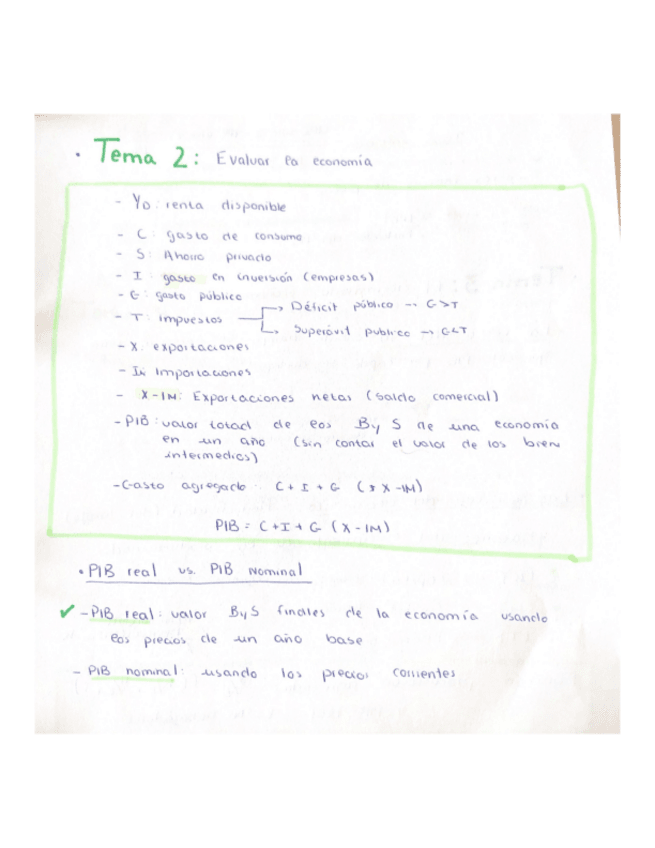 · Tema 2: Evaluar la economía
- YD: renta disponible
- C: gasto de consumo
- S: Ahorro privado
- I: gasto en inversión (empresas)
- G: gasto público
- T: impuestos → Déficit público → G>T
→ Superávit público → G<T
- X: exportaciones
- IM: Importaciones
- X-IM: Exportaciones netas (saldo comercial)
- PIB: valor total de los B y S de una economía
en un año (sin contar el valor de los bienes
intermedios)
- Gasto agregado: C + I + G (+ X - IM)
PIB = C + I + G (X - IM)
· PIB real vs. PIB nominal
✓ - PIB real: valor B y S finales de la economía usando
los precios de un año base
- PIB nominal: usando los precios corrientes